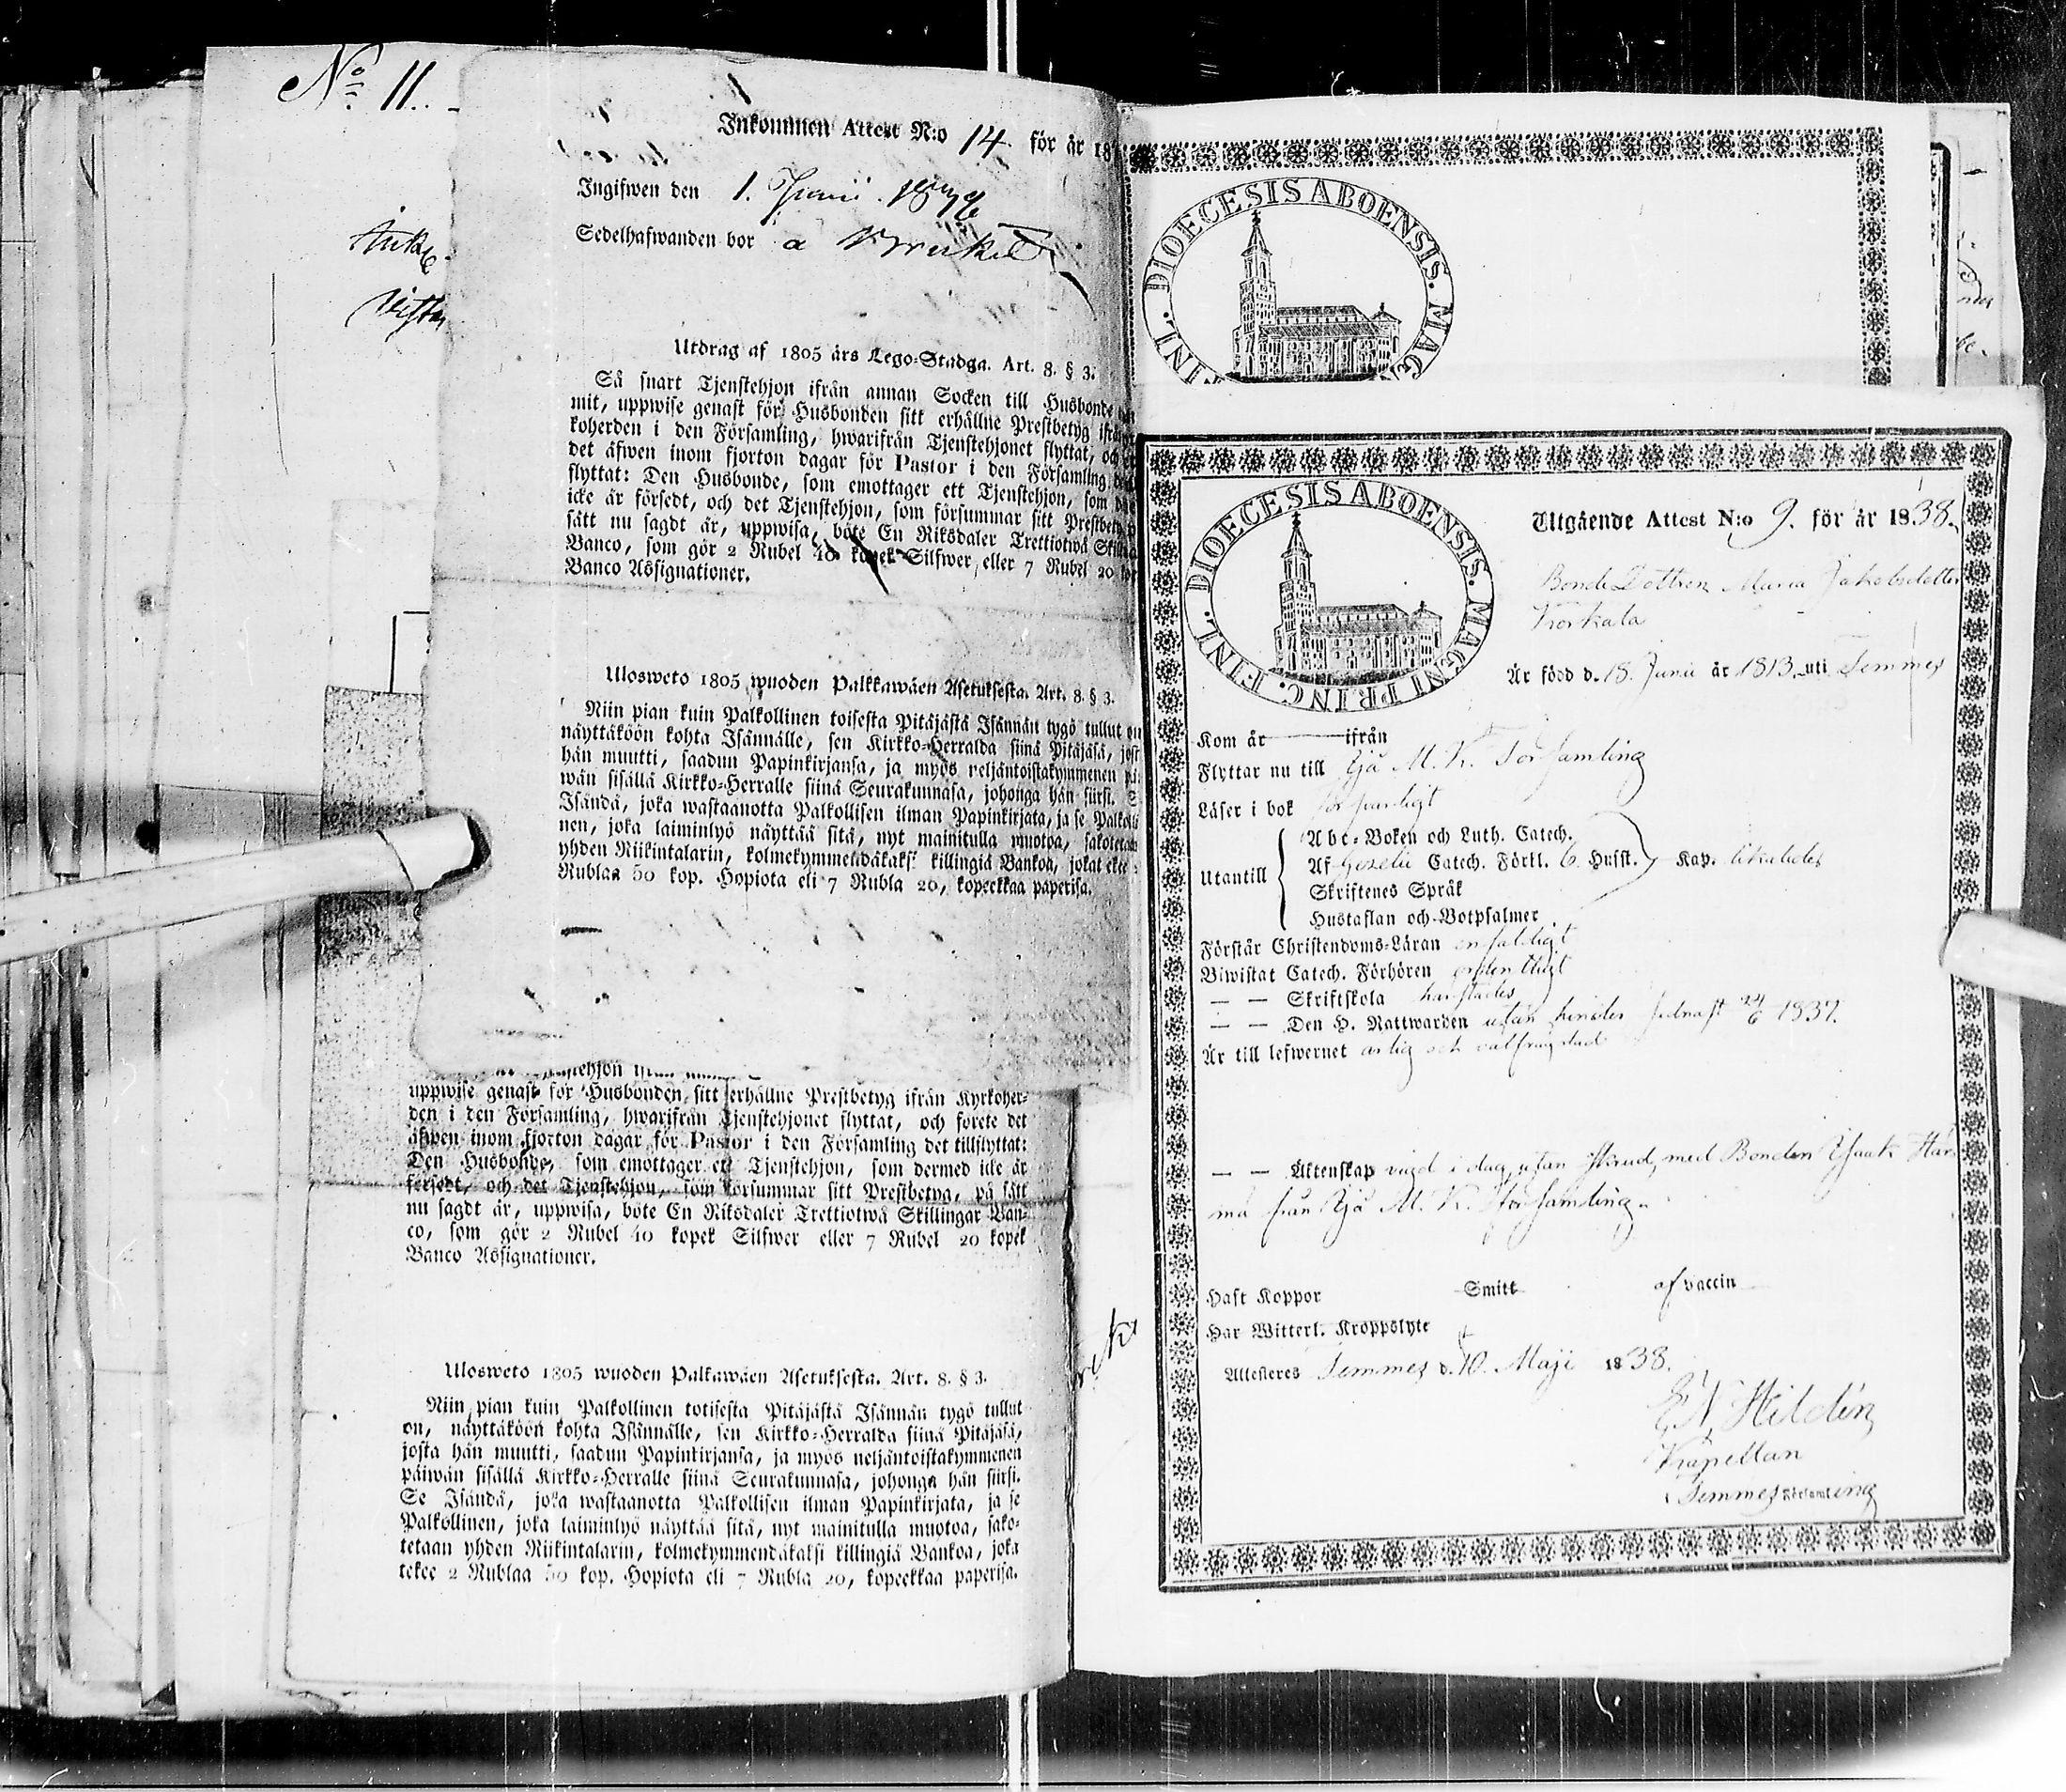 No 11.
Inkommen Attest N:o 14 för år 18
Ingifwen den 1. Junii
Sedelhafwanden bor
Utdrag af 1805 års Lego-Stadga. Art. 8. § 3.
Så snart Tjenstehjon ifrån annan Socken till Husbonde
mit, uppwise genast för Husbonden sitt erhållne Prestbetyg ifrån
koherden i den Församling, hwarifrån Tjenstehjonet flyttat, och
det äfwen inom fjorton dagar för Pastor i den Församling
flyttat: Den Husbonde, som emottager ett Tjenstehjon, som
icke är försedt, och det Tjenstehjon, som försummar sitt Prestbetyg
sätt nu sagdt är, uppwisa, böte En Riksdaler Trettiotwå
Banco, som gör 2 Rubel 40 kopek Silfwer, eller 7 Rubel 20
Banco Assignationer.
Ulosweto 1805 wuoden Palkkawäen Asetuksesta. Art. 8. § 3.
Niin pian kuin Palkollinen toisesta Pitäjästä Isännän tygö tullut on
näyttäköön kohta Isännälle, sen Kirkko-Herralda siinä Pitäjäsä,
hän muutti, saadun Papinkirjansa, ja myös neljäntoistakymmenen
wän sisällä Kirkko-Herralle siinä Seurakunnasa, johonga hän siirsi.
Isändä, joka wastaanotta Palkollisen ilman Papinkirjata, ja se
nen, joka laiminlyö näyttää sitä, nyt mainitulla muotoa,
yhden Riikintalarin, kolmekymmendäkaksi killingiä Bankoa, jokat
Rublaa 50 kop. Hopiota eli 7 Rubla 20, kopeekkaa paperisa.
uppwise genast för Husbonden sitt erhållne Prestbetyg ifrån Kyrkoher-
den i den Församling, hwarifrån Tjenstehjonet flyttat, och förete det
äfwen inom fjorton dagar för Pastor i den Församling det tillflyttat:
Den Husbonde, som emottager ett Tjenstehjon, som dermed icke är
försedt, och det Tjenstehjon, som försummar sitt Prestbetyg, på sätt
nu sagdt är, uppwisa, böte En Riksdaler Trettiotwå Skillingar Ban-
co, som gör 2 Rubel 40 kopek Silfwer eller 7 Rubel 20 kopek
Banco Assignationer.
Ulosweto 1805 wuoden Palkawäen Asetuksesta. Art. 8. § 3.
Niin pian kuin Palkollinen totisesta Pitäjästä Isännän tygö tullut
on, näyttäköön kohta Isännälle, sen Kirkko-Herralda siinä Pitäjäsä,
josta hän muutti, saadun Papinkirjansa, ja myös neljäntoistakymmenen
päiwän sisällä Kirkko-Herralle siinä Seurakunnasa, johonga hän siirsi.
Se Isändä, joka wastaanotta Palkollisen ilman Papinkirjata, ja se
Palkollinen, joka laiminlyö näyttää sitä, nyt mainitulla muotoa, sako-
tetaan yhden Riikintalarin, kolmekymmendäkaksi killingiä Bankoa, joka
tekee 2 Rublaa 50 kop. Hopiota eli 7 Rubla 20, kopeekkaa paperisa.
DIOECESIS ABOENSIS. MAG FINL.
DIOECESIS ABOENSIS. MAGNI PRINC. FINL.
Utgående Attest N:o 9. för år 1838.
Bonde Dottren Maria Jakobsdotter
Korkala
Är född d. 18. Junii år 1813. uti Temmes
Kom år ifrån
Flyttar nu till M. K. Församling
Läser i bok försvarligt
Utantill
Abc-Boken och Luth. Catech.
Af Gezelii Catech. Förkl. 6. Hufst. Kap.
Skriftenes Språk
Hustaflan och Botpsalmer
Förstår Christendoms-Läran enfaldigt
Biwistat Catech. Förhören ordentligt
— — Skriftskola härstädes
— — Den H. Nattwarden utan hinder sednast 24/6 1837.
Är till lefwernet ärlig och välfrägdad
— — Äktenskap vigd i dag, utan skrud, med Bonden Isaak Här
mä från M. K. Församling.
Haft Koppor Smitt af vaccin
Har Witterl. Kroppslyte
Attesteres Temmes d. 10. Maji 1838.
Hildén
Kapellan
i Temmes Församling